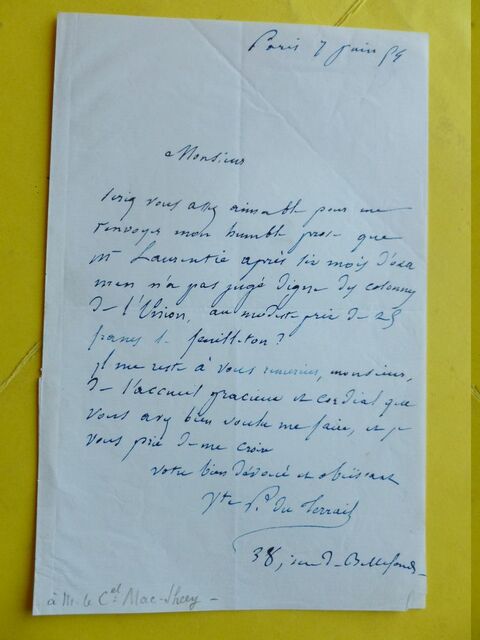 Paris 7 juin 54
Monsieur
Serez vous assez aimable pour me
renvoyer mon humble prose que
Mr Laurentie après six mois d'exa
men n'a pas jugé digne des colonnes
de l'Union, au modeste prix de 25
francs le feuilleton ?
Il me reste à vous remercier, monsieur,
de l'accueil gracieux et cordial que
vous avez bien voulu me faire, et je
vous prie de me croire
votre bien dévoué et obéissant
Vte P. du Terrail
38, rue de Bellefond
à M. le Cel Mac-Sheey